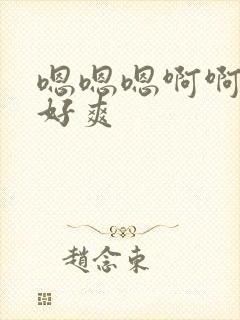 嗯嗯嗯啊啊
好爽
趙念東